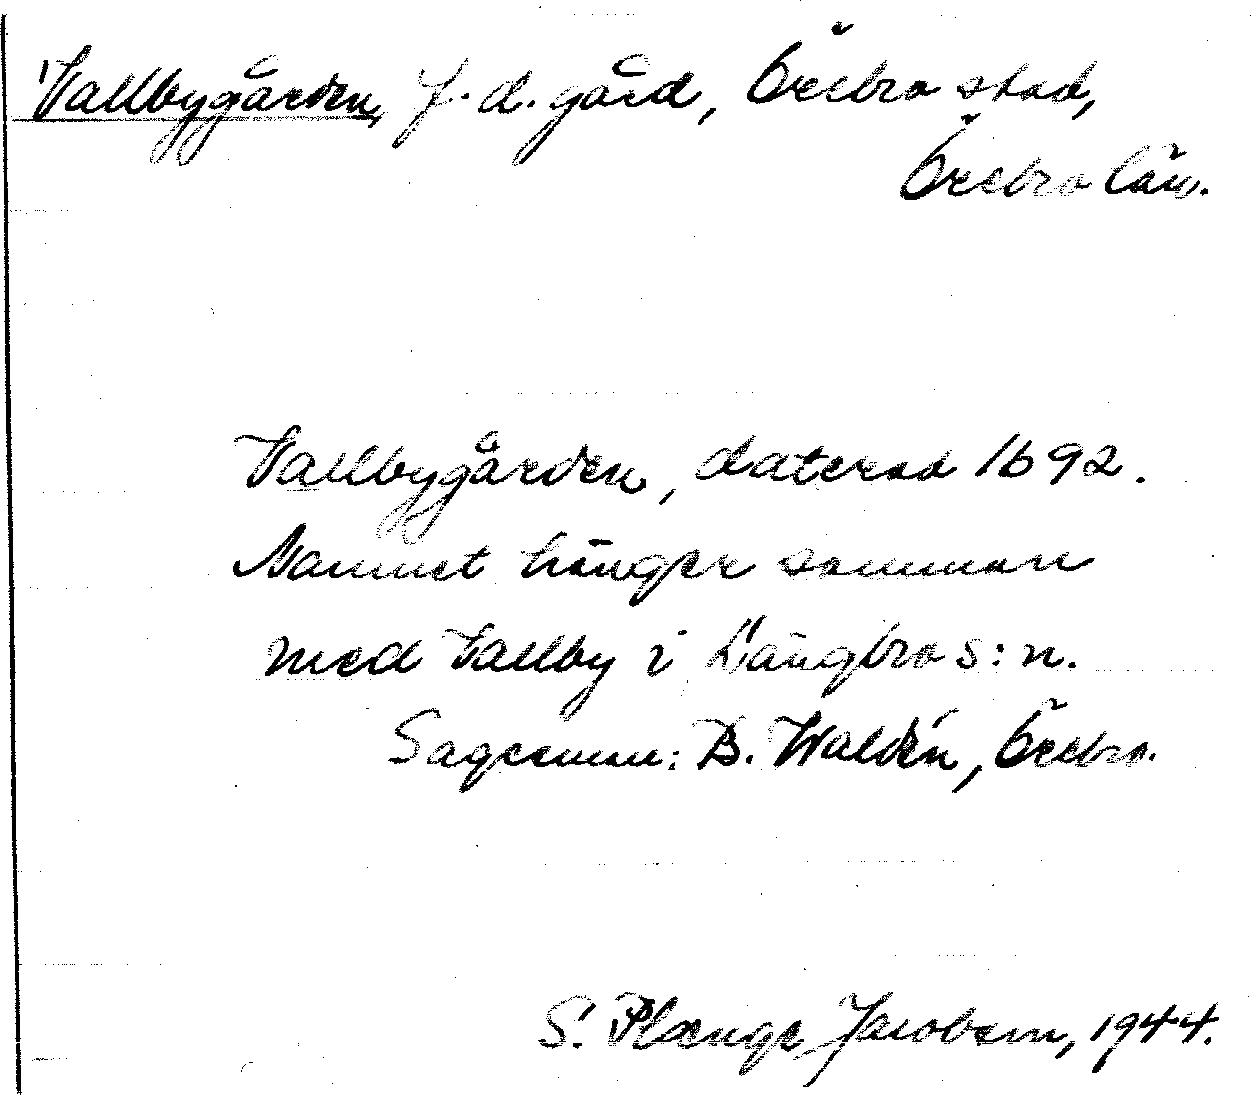 Vallbygården, f.d. gård, Örebro stad,
Örebro län.
Vallbygården, daterad 1692.
Namnet hänger samman
med Vallby i Längbro s:n.
Sagesman: B. Waldén, Örebro.
S. Plænge Jacobson, 1944.